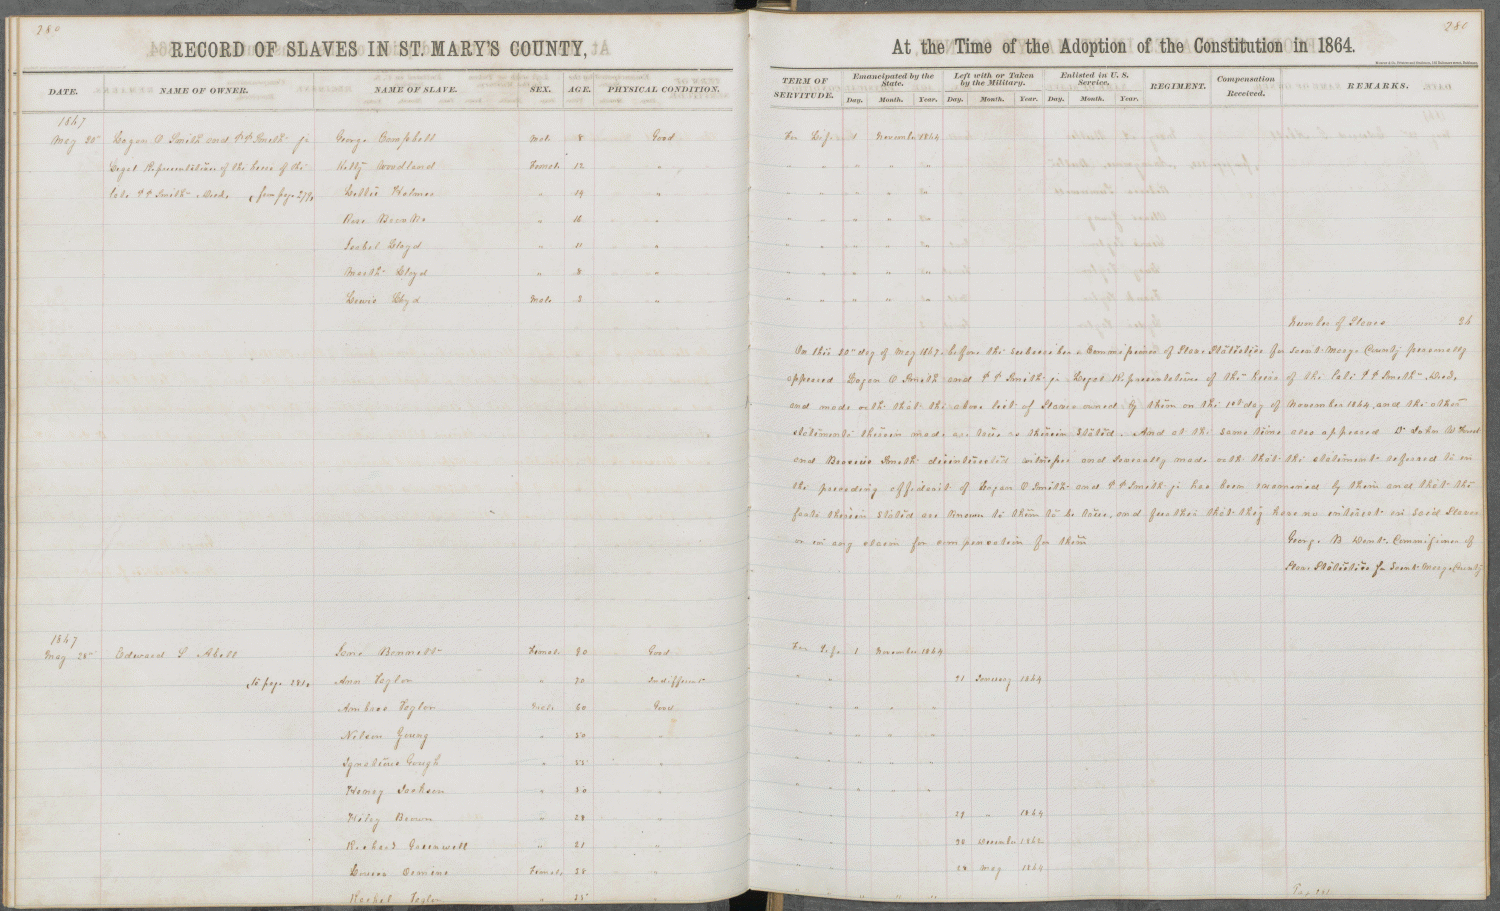 280
RECORD OF SLAVES IN ST. MARY'S COUNTY,
DATE. NAME OF OWNER. NAME OF SLAVE. SEX. AGE. PHYSICAL CONDITION.
1867
May 28 Logan O Smith and Smith jr George Campbell Male 8 Good
Legal Representatives of the heirs of the Kitty Woodland Female 12 "
late Smith Decd. from page 279 Nellie Holmes " 14 "
Rose Brooks " 16 "
Isabel Lloyd " 11 "
Martha Lloyd " 8 "
Lewis Lloyd Male 2 "
1867
May 28 Edward S Abell Jane Bennett Female 90 Good
to page 281 Ann Taylor " 70 Indifferent
Ambrose Taylor Male 60 Good
Nelson Young " 50 "
Ignatius Gough " 55 "
Henry Jackson " 50 "
Henry Brown " 28 "
Richard Greenwell " 21 "
Louisa Female 38 "
Rachel Taylor " 25 "
280
At the Time of the Adoption of the Constitution in 1864.
TERM OF SERVITUDE. Emancipated by the State. Left with or Taken by the Military. Enlisted in U. S. Service. REGIMENT. Compensation Received. REMARKS.
Day. Month. Year. Day. Month. Year. Day. Month. Year.
For Life 1 November 1864
" " " " "
" " " " "
" " " " "
" " " " "
" " " " "
" " " " "
Number of Slaves 36
On this 28 day of May 1867, before the subscriber a Commissioner of Slave Statistics for Saint Marys County personally
appeared Logan O Smith and Smith jr Legal Representatives of the heirs of the late Smith Decd.
and made oath that the above list of Slaves owned by them on the 1st day of November 1864, and the other
statements therein made are true as therein stated. And at the same time also appeared Dr John W
and Smith disinterested witnesses and severally made oath that the statement referred to in
the preceding affidavit of Logan O Smith and Smith jr has been examined by them and that the
facts therein stated are known to them to be true, and further that they have no interest in said Slaves
or in any claim for compensation for them George B Dent. Commissioner of
Slave Statistics for Saint Marys County
For Life 1 November 1864
" " 21 January 1864
" " " " "
" " " " "
" " " " "
" " " " "
" 21 " 1864
" " 28 December 1863
" " 28 May 1864
" " " " "